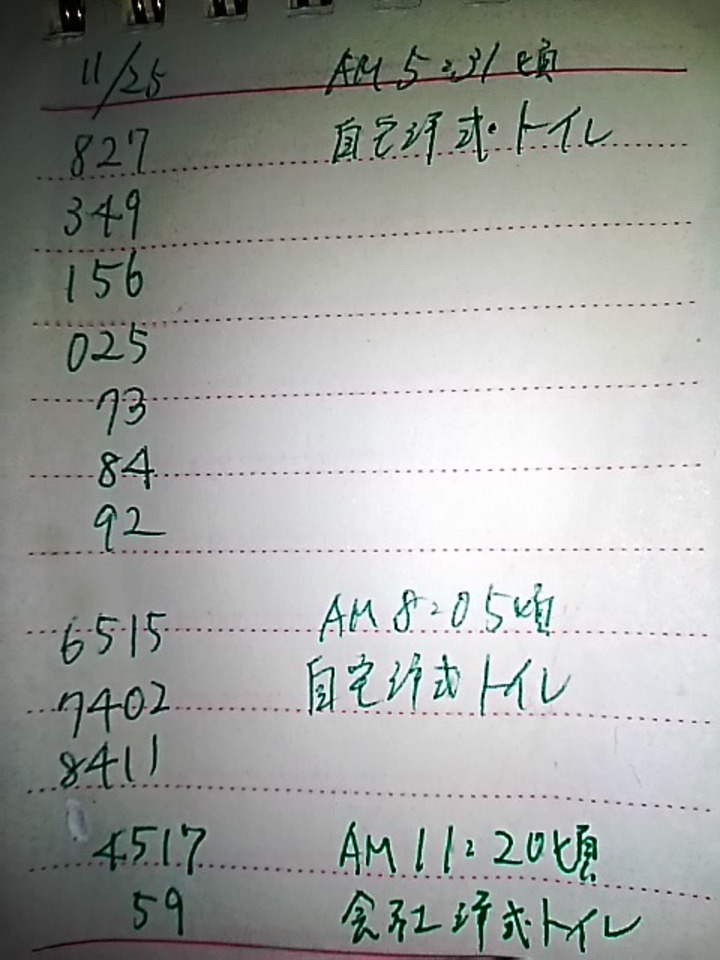 11/25 AM 5:31頃
827 自宅洋式・トイレ
349
156
025
73
84
92
6515 AM 8:05頃
7402 自宅洋式トイレ
8411
4517 AM 11:20頃
59 会社洋式トイレ